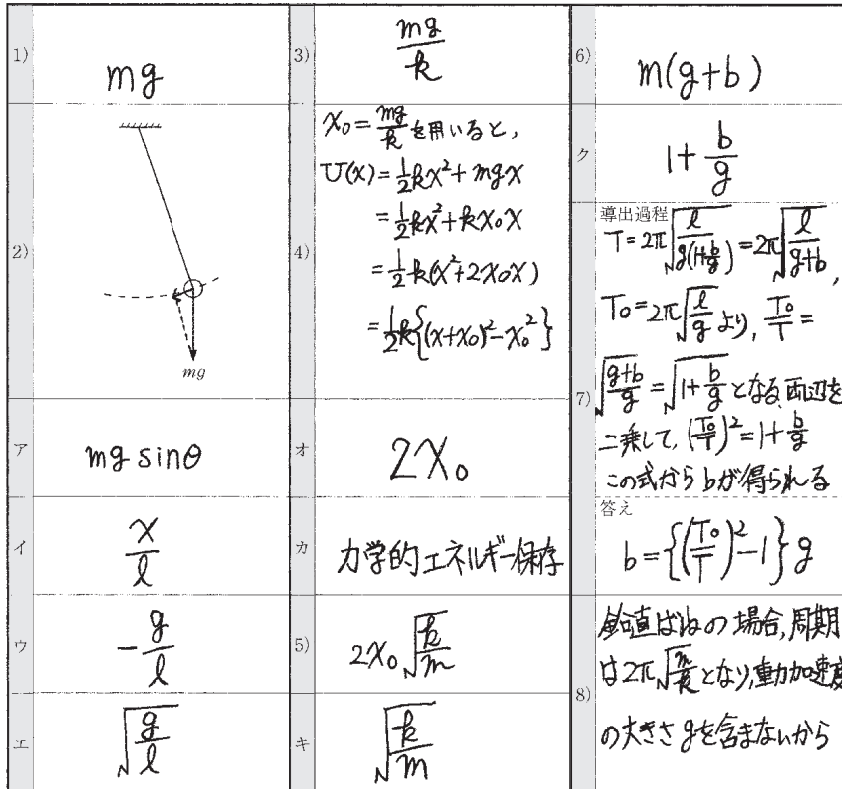 1)
mg
2)
mg
ア
mg sinθ
イ
x/l
ウ
-g/l
エ
√(g/l)
3)
mg/k
4)
x₀=mg/k を用いると,
U(x)=1/2kx²+mgx
=1/2kx²+kx₀x
=1/2k(x²+2x₀x)
=1/2k{(x+x₀)²-x₀²}
オ
2x₀
カ
力学的エネルギー保存
5)
2x₀√(k/m)
キ
√(k/m)
6)
m(g+b)
ク
1+b/g
7)
導出過程
T=2π√(l/(g(1+b/g)))=2π√(l/(g+b)),
T₀=2π√(l/g) より, T₀/T=
√((g+b)/g)=√(1+b/g) となる, 両辺を
二乗して, (T₀/T)²=1+b/g
この式からbが得られる
答え
b={(T₀/T)²-1}g
8)
鉛直ばねの場合, 周期
は2π√(m/k)となり, 重力加速度
の大きさgを含まないから